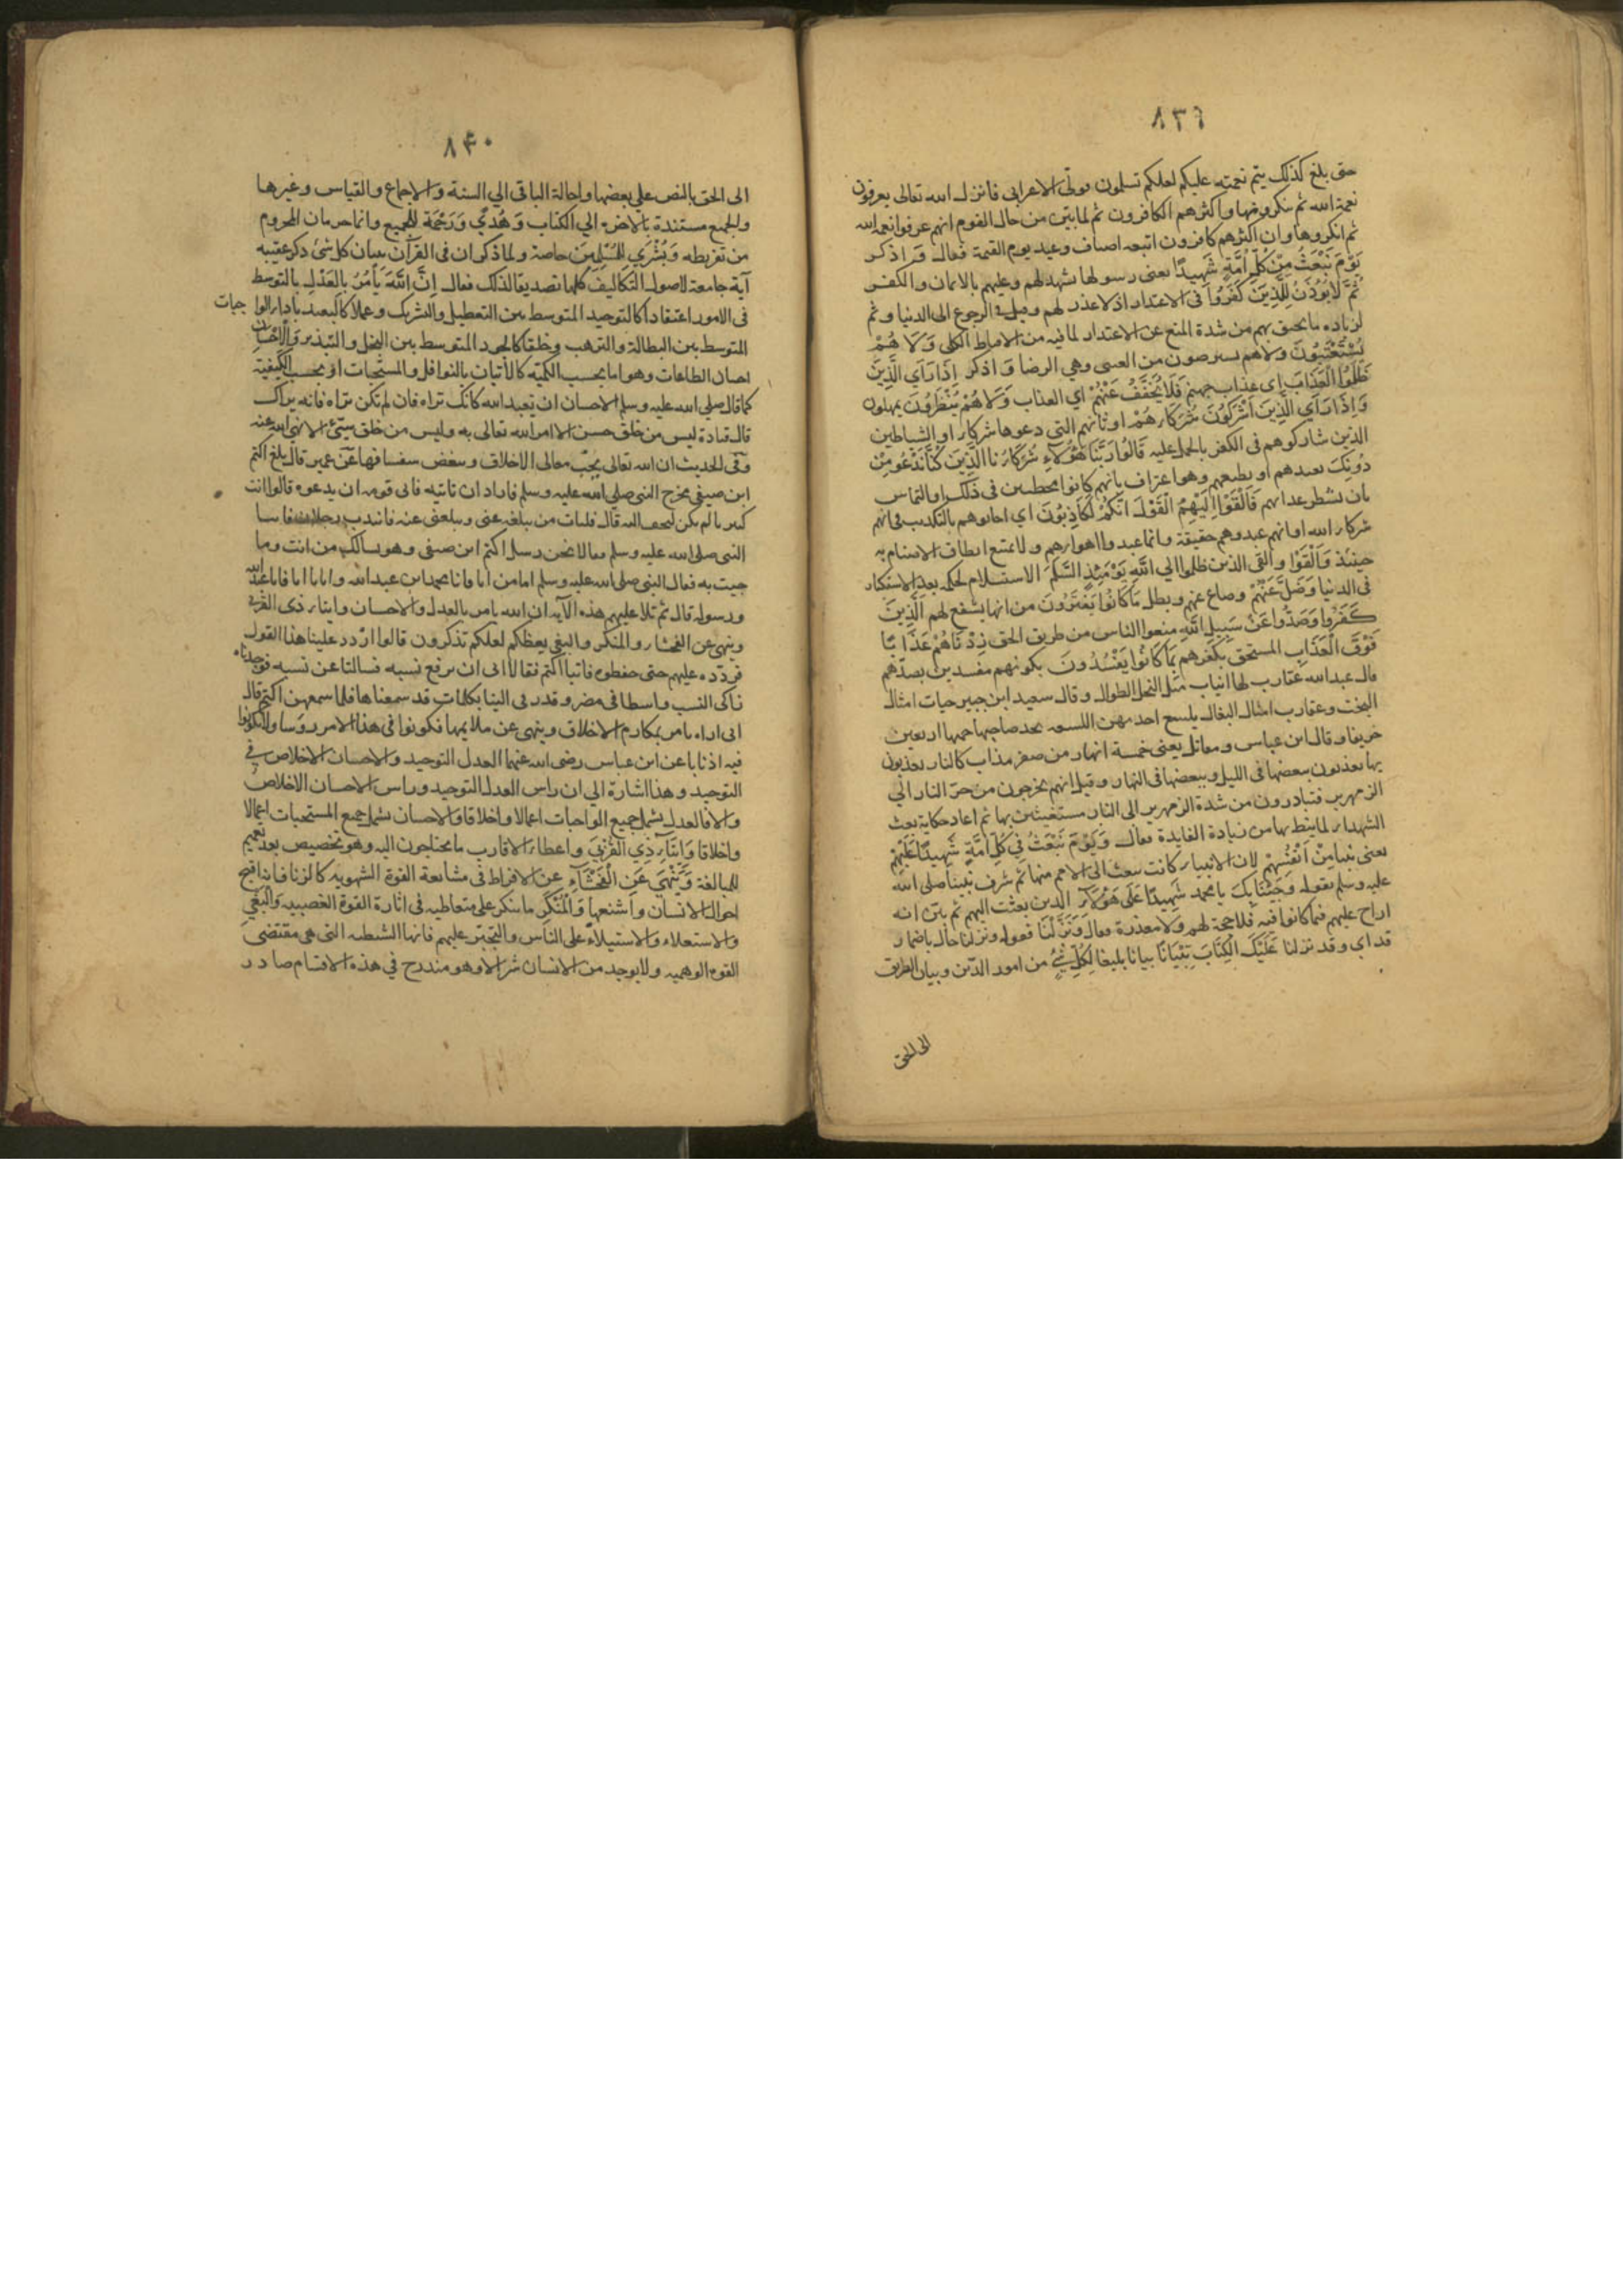 ٨٣٩
حتى بلغ كذلك يتم نعمته عليكم لعلكم تسلمون فولّى الاعرابى فانزل الله تعالى يعرفون
نعمة الله ثم ينكرونها واكثرهم الكافرون ثم لما بيّن من حال القوم انهم عرفوا نعمة الله
ثم انكروها وان اكثرهم كافرون اتبعه اصناف وعيد يوم القيمة فقال وَ اذكر
يَوْمَ نَبْعَثُ مِنْ كُلِّ اُمَّةٍ شَهِيدًا يعنى رسولها يشهد لهم وعليهم بالايمان والكفر
ثُمَّ لَا يُؤْذَنُ لِلَّذِينَ كَفَرُوا فى الاعتذار اذ لا عذر لهم وقيل فى الرجوع الى الدنيا وثم
لزيادة ما يحيق بهم من شدة المنع عن الاعتذار لما فيه من الاقناط الكلى وَلَا هُمْ
يُسْتَعْتَبُونَ ولا هم يسترضون من العتبى وهي الرضا وَ اذكر اِذَا رَاَي الَّذِينَ
ظَلَمُوا الْعَذَابَ اى عذاب جهنم فَلَا يُخَفَّفُ عَنْهُمْ اي العذاب وَلَا هُمْ يُنْظَرُونَ يمهلون
وَاِذَا رَاَي الَّذِينَ اَشْرَكُوْنَ شُرَكَاءَهُمْ اوثانهم التي دعوها شركاء او الشياطين
الذين شاركوهم فى الكفر بالحمل عليه قَالُوا رَبَّنَا هٰؤُلَاءِ شُرَكَاؤُنَا الَّذِينَ كُنَّا نَدْعُو مِنْ
دُونِكَ نعبدهم او نطيعهم وهو اعتراف بانهم كانوا مخطئين فى ذلك او التماس
بان يشطر عذابهم فَاَلْقَوْا اِلَيْهِمُ الْقَوْلَ اِنَّكُمْ لَكَاذِبُونَ اي اجابوهم بالتكذيب فى انهم
شركاء الله او انهم عبدوهم حقيقة وانما عبدوا اهواءهم ولا يمتنع انطاق الاصنام به
حينئذ وَاَلْقَوْا والقى الذين ظلموا اِلي اللّٰهِ يَوْمَئِذٍ السَّلَمَ الاستسلام لحكمه بعد الاستكبار
فى الدنيا وَضَلَّ عَنْهُمْ وضاع عنهم وبطل مَا كَانُوا يَفْتَرُونَ من انها يشفع لهم الَّذِينَ
كَفَرُوا وَصَدُّوا عَنْ سَبِيلِ اللّٰهِ منعوا الناس من طريق الحق زِدْنَاهُمْ عَذَابًا
فَوْقَ الْعَذَابِ المستحق بكفرهم بِمَا كَانُوا يُفْسِدُونَ بكونهم مفسدين بصدّهم
قال عبد الله عقارب لها انياب مثل النخل الطوال وقال سعيد ابن جبير حيات امثال
البخت وعقارب امثال البغال يلسع احديهن اللسعة يجد صاحبها حمها اربعين
خريفا وقال ابن عباس ومقاتل يعنى خمسة انهار من صفر مذاب كالنار يعذبون
بها يعذبون ببعضها فى الليل وببعضها فى النهار وقيل انهم يخرجون من حرّ النار الي
الزمهرير فتبادرون من شدة الزمهرير الى النار مستغيثين بها ثم اعاد حكاية بعث
الشهداء لما ينط بها من زيادة الفايدة فقال وَيَوْمَ نَبْعَثُ فِي كُلِّ اُمَّةٍ شَهِيدًا عَلَيْهِمْ
يعنى نبيها مِنْ اَنْفُسِهِمْ لان الانبياء كانت تبعث الى الامم منها ثم شرف نبينا صلى الله
عليه وسلم بقوله وَجِئْنَا بِكَ يا محمد شَهِيدًا عَلَى هٰؤُلَاءِ الذين بعثت اليهم ثم بيّن انه
ازاح عليهم فيما كانوا فيه فلا حجة لهم ولا معذرة فقال وَنَزَّلْنَا فقوله ونزلنا حال باضمار
قد اي وقد نزلنا عَلَيْكَ الْكِتَابَ تِبْيَانًا بيانا بليغا لِكُلِّ شَيْءٍ من امور الدّين وبيان الطريق
الى الحق
٨٤٠
الى الحق بالنص على بعضها واحالة الباقى الي السنة والاجماع والقياس وغيرها
والجميع مستندة بالاخرة الي الكتاب وَهُدًي وَرَحْمَةً للجميع وانما حرمان المحروم
من تفريطه وَبُشْرَي لِلْمُسْلِمِينَ خاصة ولما ذكر ان فى القرآن بيان كل شئ ذكر عقيبه
آية جامعة لاصول التكاليف كلها تصديقا لذلك فقال اِنَّ اللّٰهَ يَأْمُرُ بِالْعَدْلِ بالتوسط
فى الامور اعتقادا كالتوحيد المتوسط بين التعطيل والشريك وعملا كالتعبد باداء الوا جبات
المتوسط بين البطالة والترهب وخلقا كالجود المتوسط بين البخل والتبذير وَالْاِحْسَانِ
احسان الطاعات وهو اما بحسب الكمّيّة كالأتيان بالنوافل والمستحبات او بحسب الكيفيّة
كما قال صلى الله عليه وسلم الاحسان ان تعبد الله كانك تراه فان لم تكن تراه فانه يراك
قال قتادة ليس من خلق حسن الا امر الله تعالى به وليس من خلق سيّئ الا نهى الله عنه
وفى الحديث ان الله تعالى يحبّ معالى الاخلاق ويبغض سفسافها عن عمير قال بلغ اكثم
ابن صيفى مخرج النبى صلى الله عليه وسلم فاراد ان ياتيه فابى قومه ان يدعوه قالوا انت
كبيرنا لم يكن لتخف اليه قال فليات من يبلغه عنى ويبلغنى عنه فانتدب رجلان فاتيا
النبى صلى الله عليه وسلم فقالا نحن رسل اكثم ابن صيفى وهو يسالك من انت وما
جيت به فقال النبى صلى الله عليه وسلم اما من انا فانا محمد ابن عبد الله واما ما انا فانا عبد الله
ورسوله قال ثم تلا عليهم هذه الآية ان الله يامر بالعدل والاحسان وايتاء ذى القربى
وينهى عن الفحشاء والمنكر والبغى يعظكم لعلكم تذكرون قالوا اردد علينا هذا القول
فردّده عليهم حتى حفظوه فاتيا اكثم فقالا ابى ان يرفع نسبه فسالنا عن نسبه فوجدناه
زاكى النسب واسطا فى مضر وقد رمى الينا بكلمات قد سمعناها فلما سمعهن اكثم قال
انى اراه يامر بمكارم الاخلاق وينهى عن ملايمها فكونوا فى هذا الامر روسا ولا تكونوا
فيه اذنابا عن ابن عباس رضى الله عنهما العدل التوحيد والاحسان الاخلاص فى
التوحيد وهذا اشارة الي ان راس العدل التوحيد وراس الاحسان الاخلاص
والا فالعدل يشمل جميع الواجبات اعمالا واخلاقا والاحسان يشمل جميع المستحبات اعمالا
واخلاقا وَاِيتَاءِ ذِي الْقُرْبَي واعطاء الاقارب ما يحتاجون اليه وهو تخصيص بعد تعميم
للمبالغة وَيَنْهَي عَنِ الْفَحْشَاءِ عن الافراط فى مشايعة القوة الشهوية كالزنا فانه اقبح
احوال الانسان واشنعها وَالْمُنْكَرِ ما ينكر على متعاطيه فى اثارة القوة الغضبيه وَالْبَغْيِ
والاستعلاء والاستيلاء على الناس والتجبّر عليهم فانها الشيطنه التى هى مقتضى
القوه الوهميه ولا يوجد من الانسان شر الا وهو مندرج في هذه الاقسام صادر